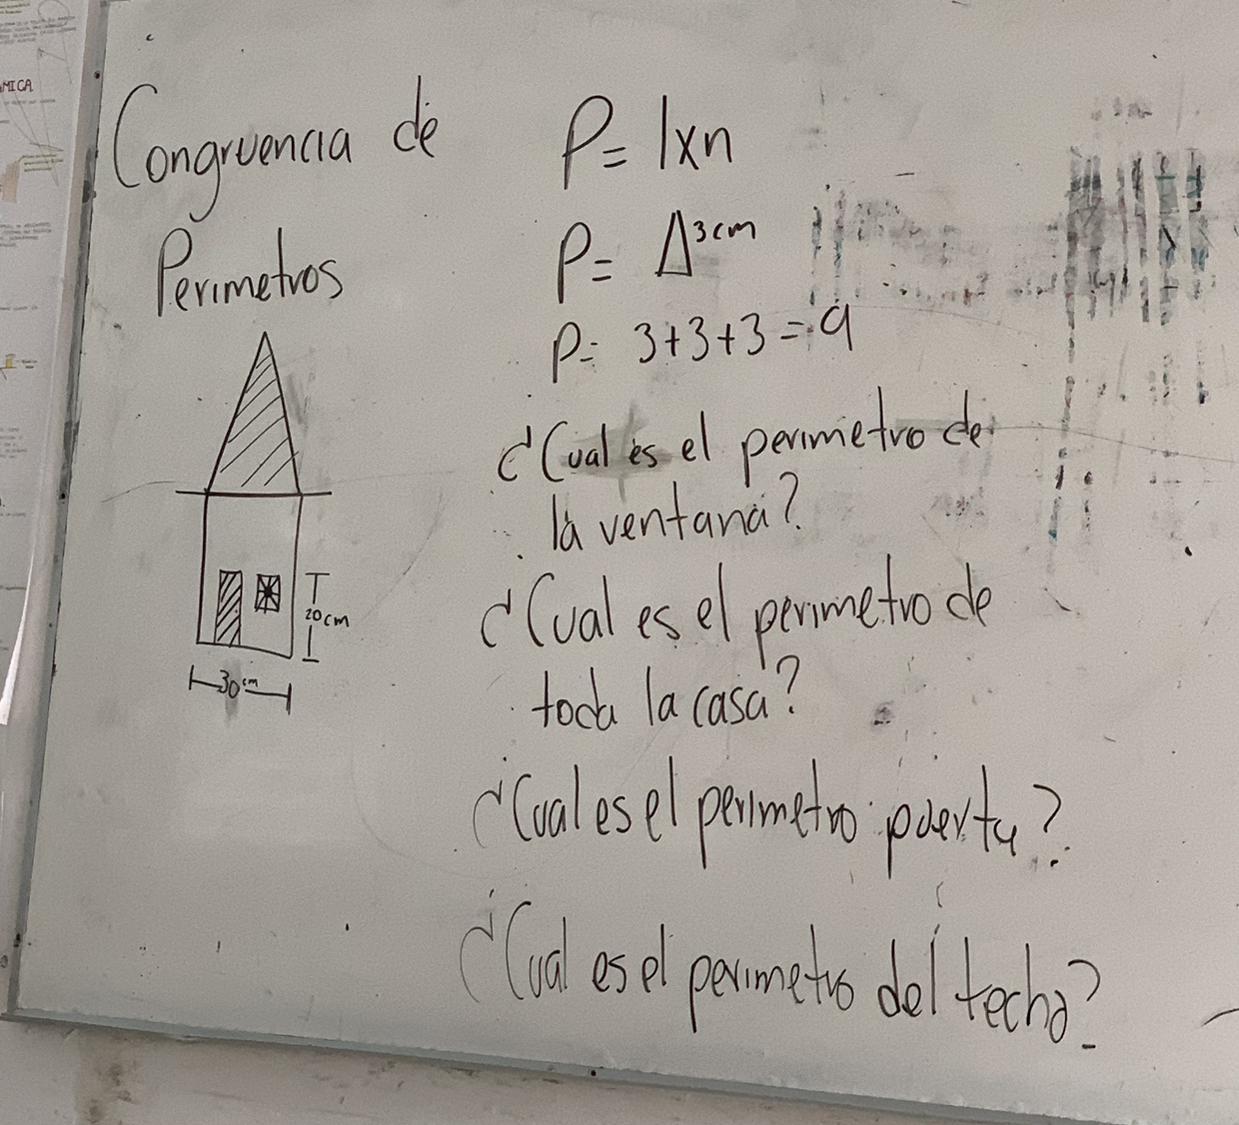 MICA
Congruencia de
Perimetros
20cm
30cm
P= lxn
P= Δ3cm
P= 3+3+3=9
¿Cual es el perimetro de
la ventana?
¿Cual es el perimetro de
toda la casa?
¿Cual es el perimetro puerta?
¿Cual es el perimetro del techo?